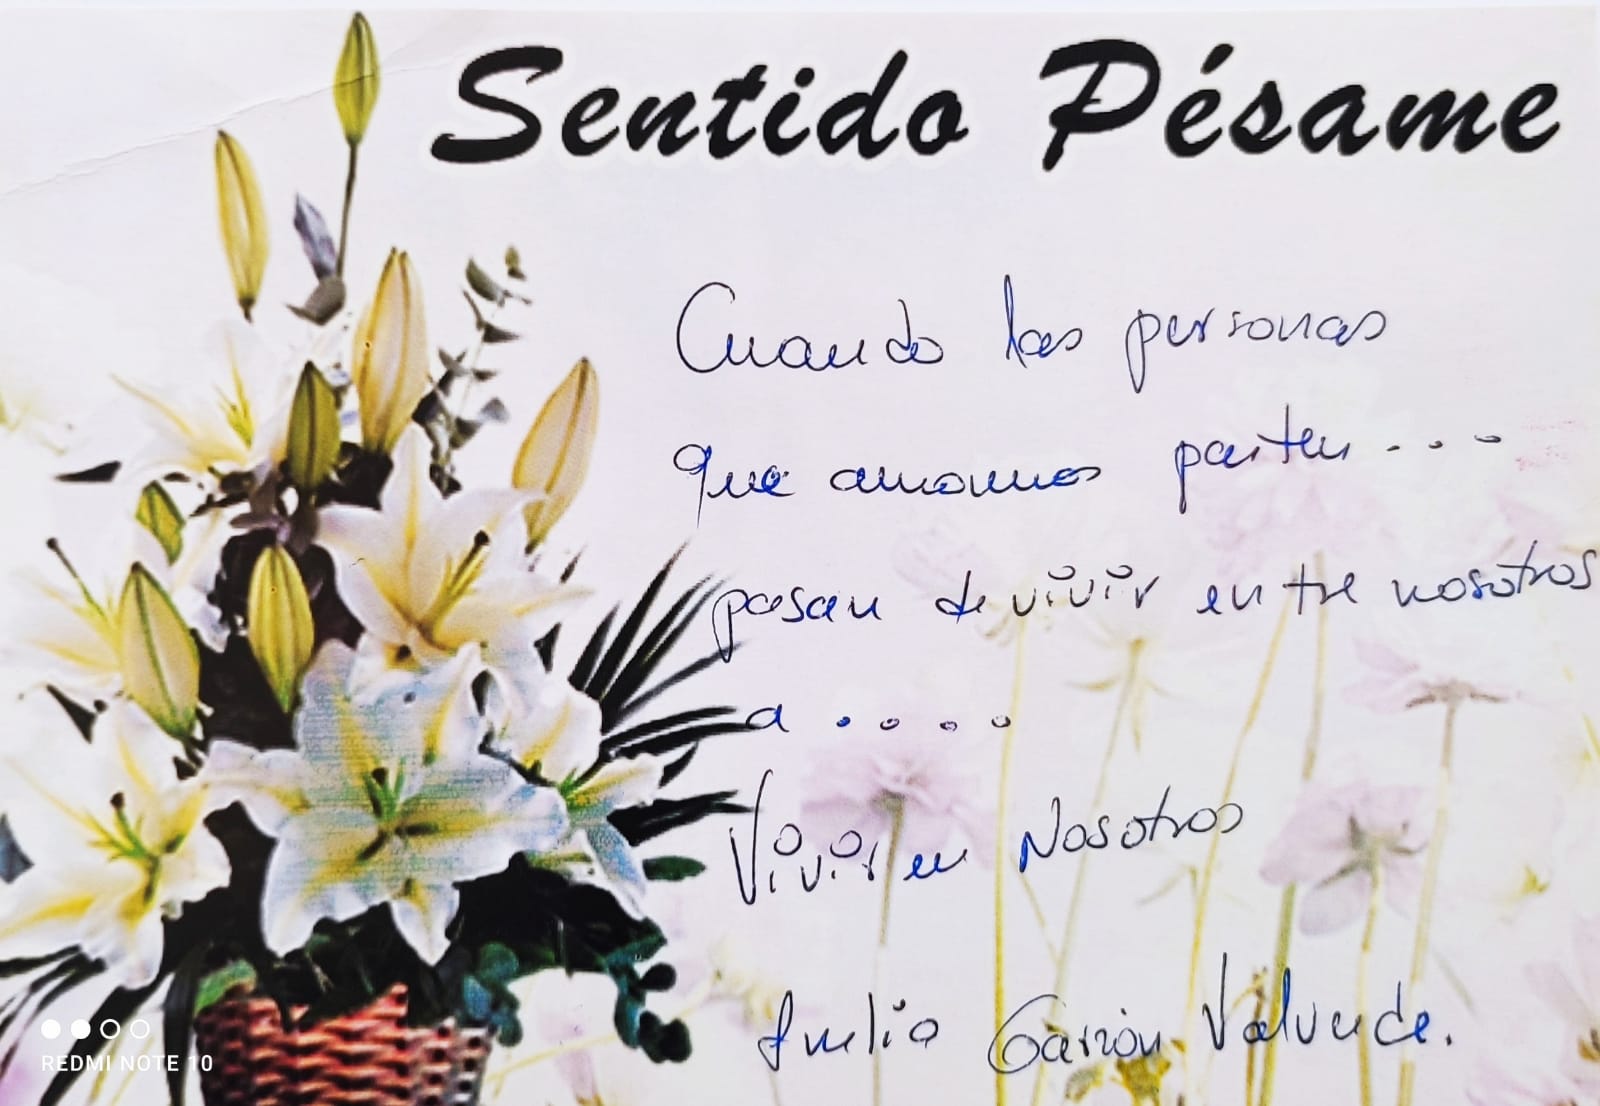 Sentido Pésame
Cuando las personas
que amamos parten...
pasan de vivir entre nosotros
a ....
Vivir en Nosotros
Garzón Valverde.
REDMI NOTE 10